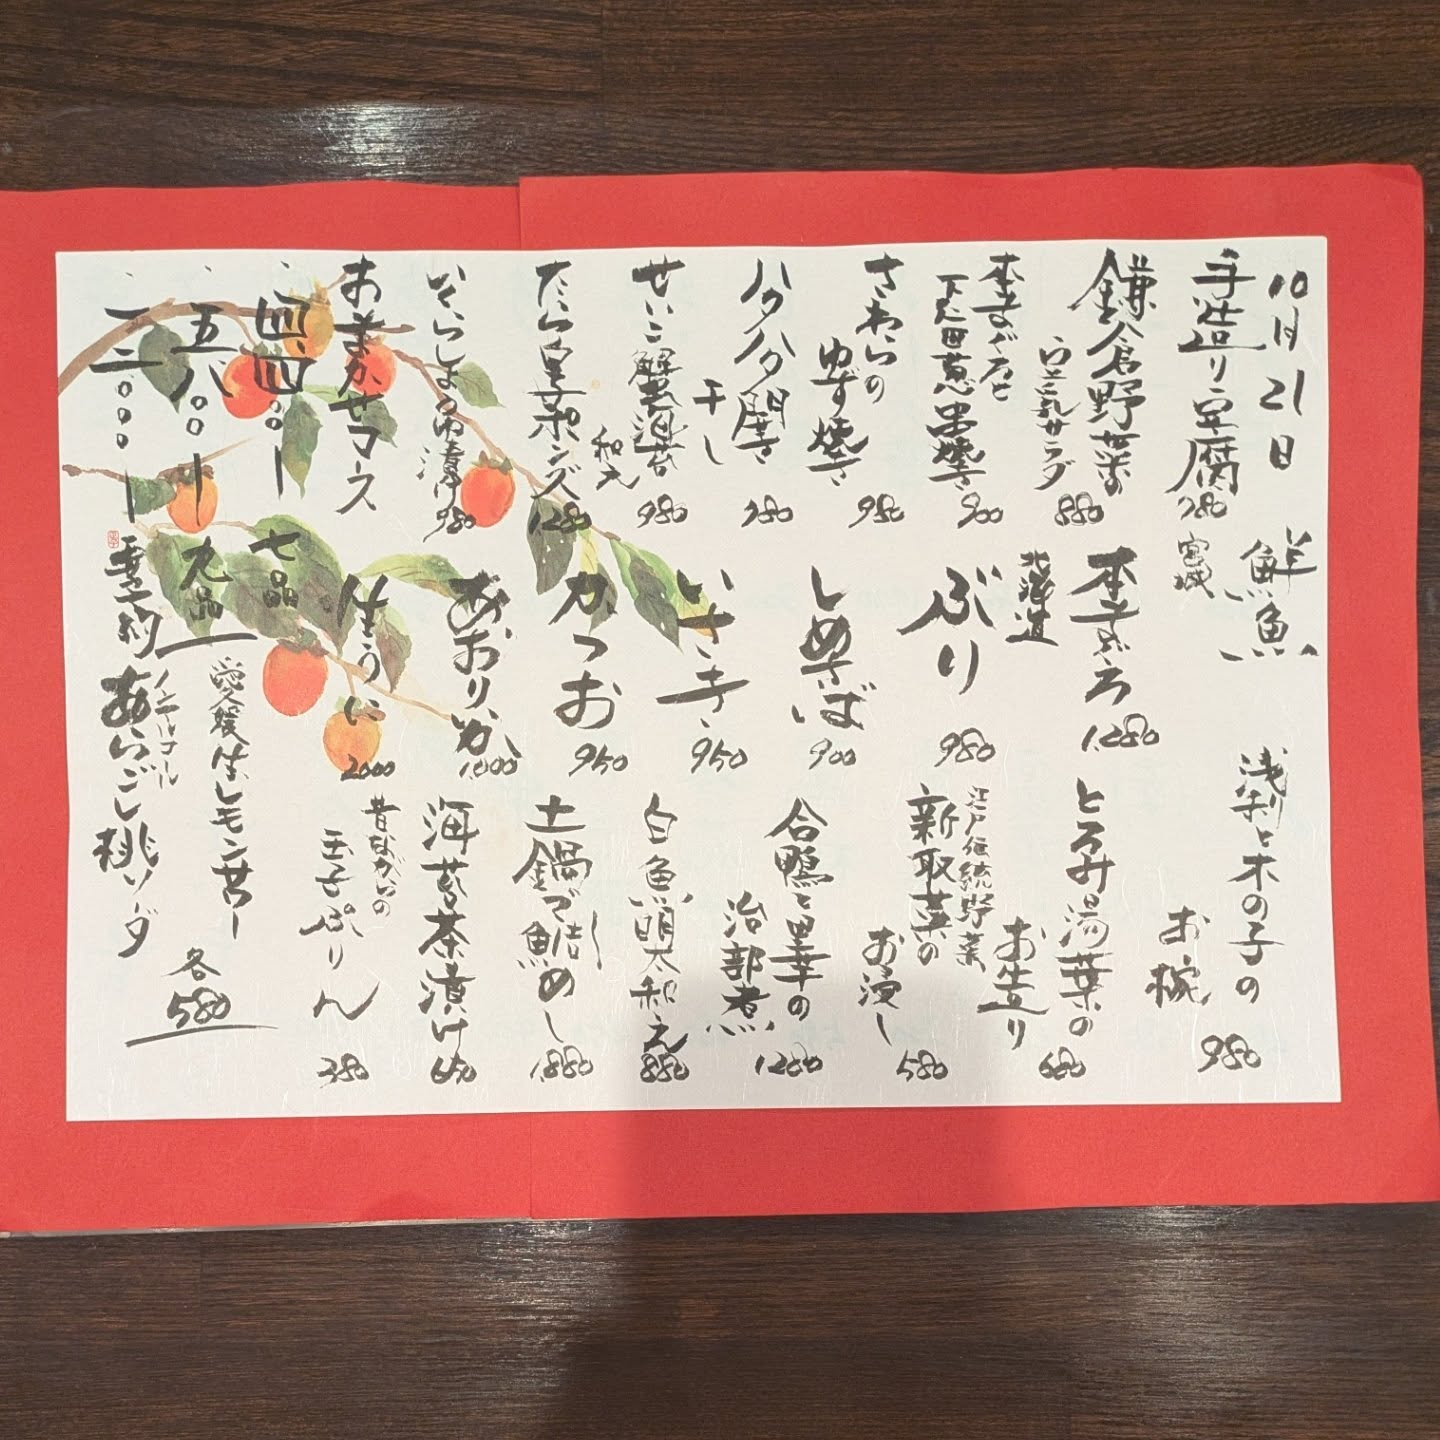 10月21日
手造り豆腐
780
鎌倉野菜の
ウニ乳サラダ
880
本まぐろと
下仁田葱串焼き
900
さわらの
ゆず焼き
980
ハタハタ開き
干し
780
せいこ蟹
和え
980
たら白子ポンズ
1280
いくらしょうゆ漬け
980
おまかせコース
、四、四〇〇ー
七品
、五、八〇〇ー
九品
、一二、〇〇〇ー
要予約
鮮魚
宮城
本まぐろ
1.280
北海道
ぶり
980
しめさば
900
いさき
950
かつお
950
あおりいか
1.000
生うに
2000
浅利と木の子の
お椀
980
とろみ湯葉の
お造り
680
江戸伝統野菜
新取菜の
お浸し
580
合鴨と里芋の
治部煮
1280
白魚明太和え
880
土鍋で鯛めし
1.880
海苔茶漬け
650
昔ながらの
玉子ぷりん
380
愛媛生レモンサワー
ノンアルコール
あらごし桃ソーダ
各
580